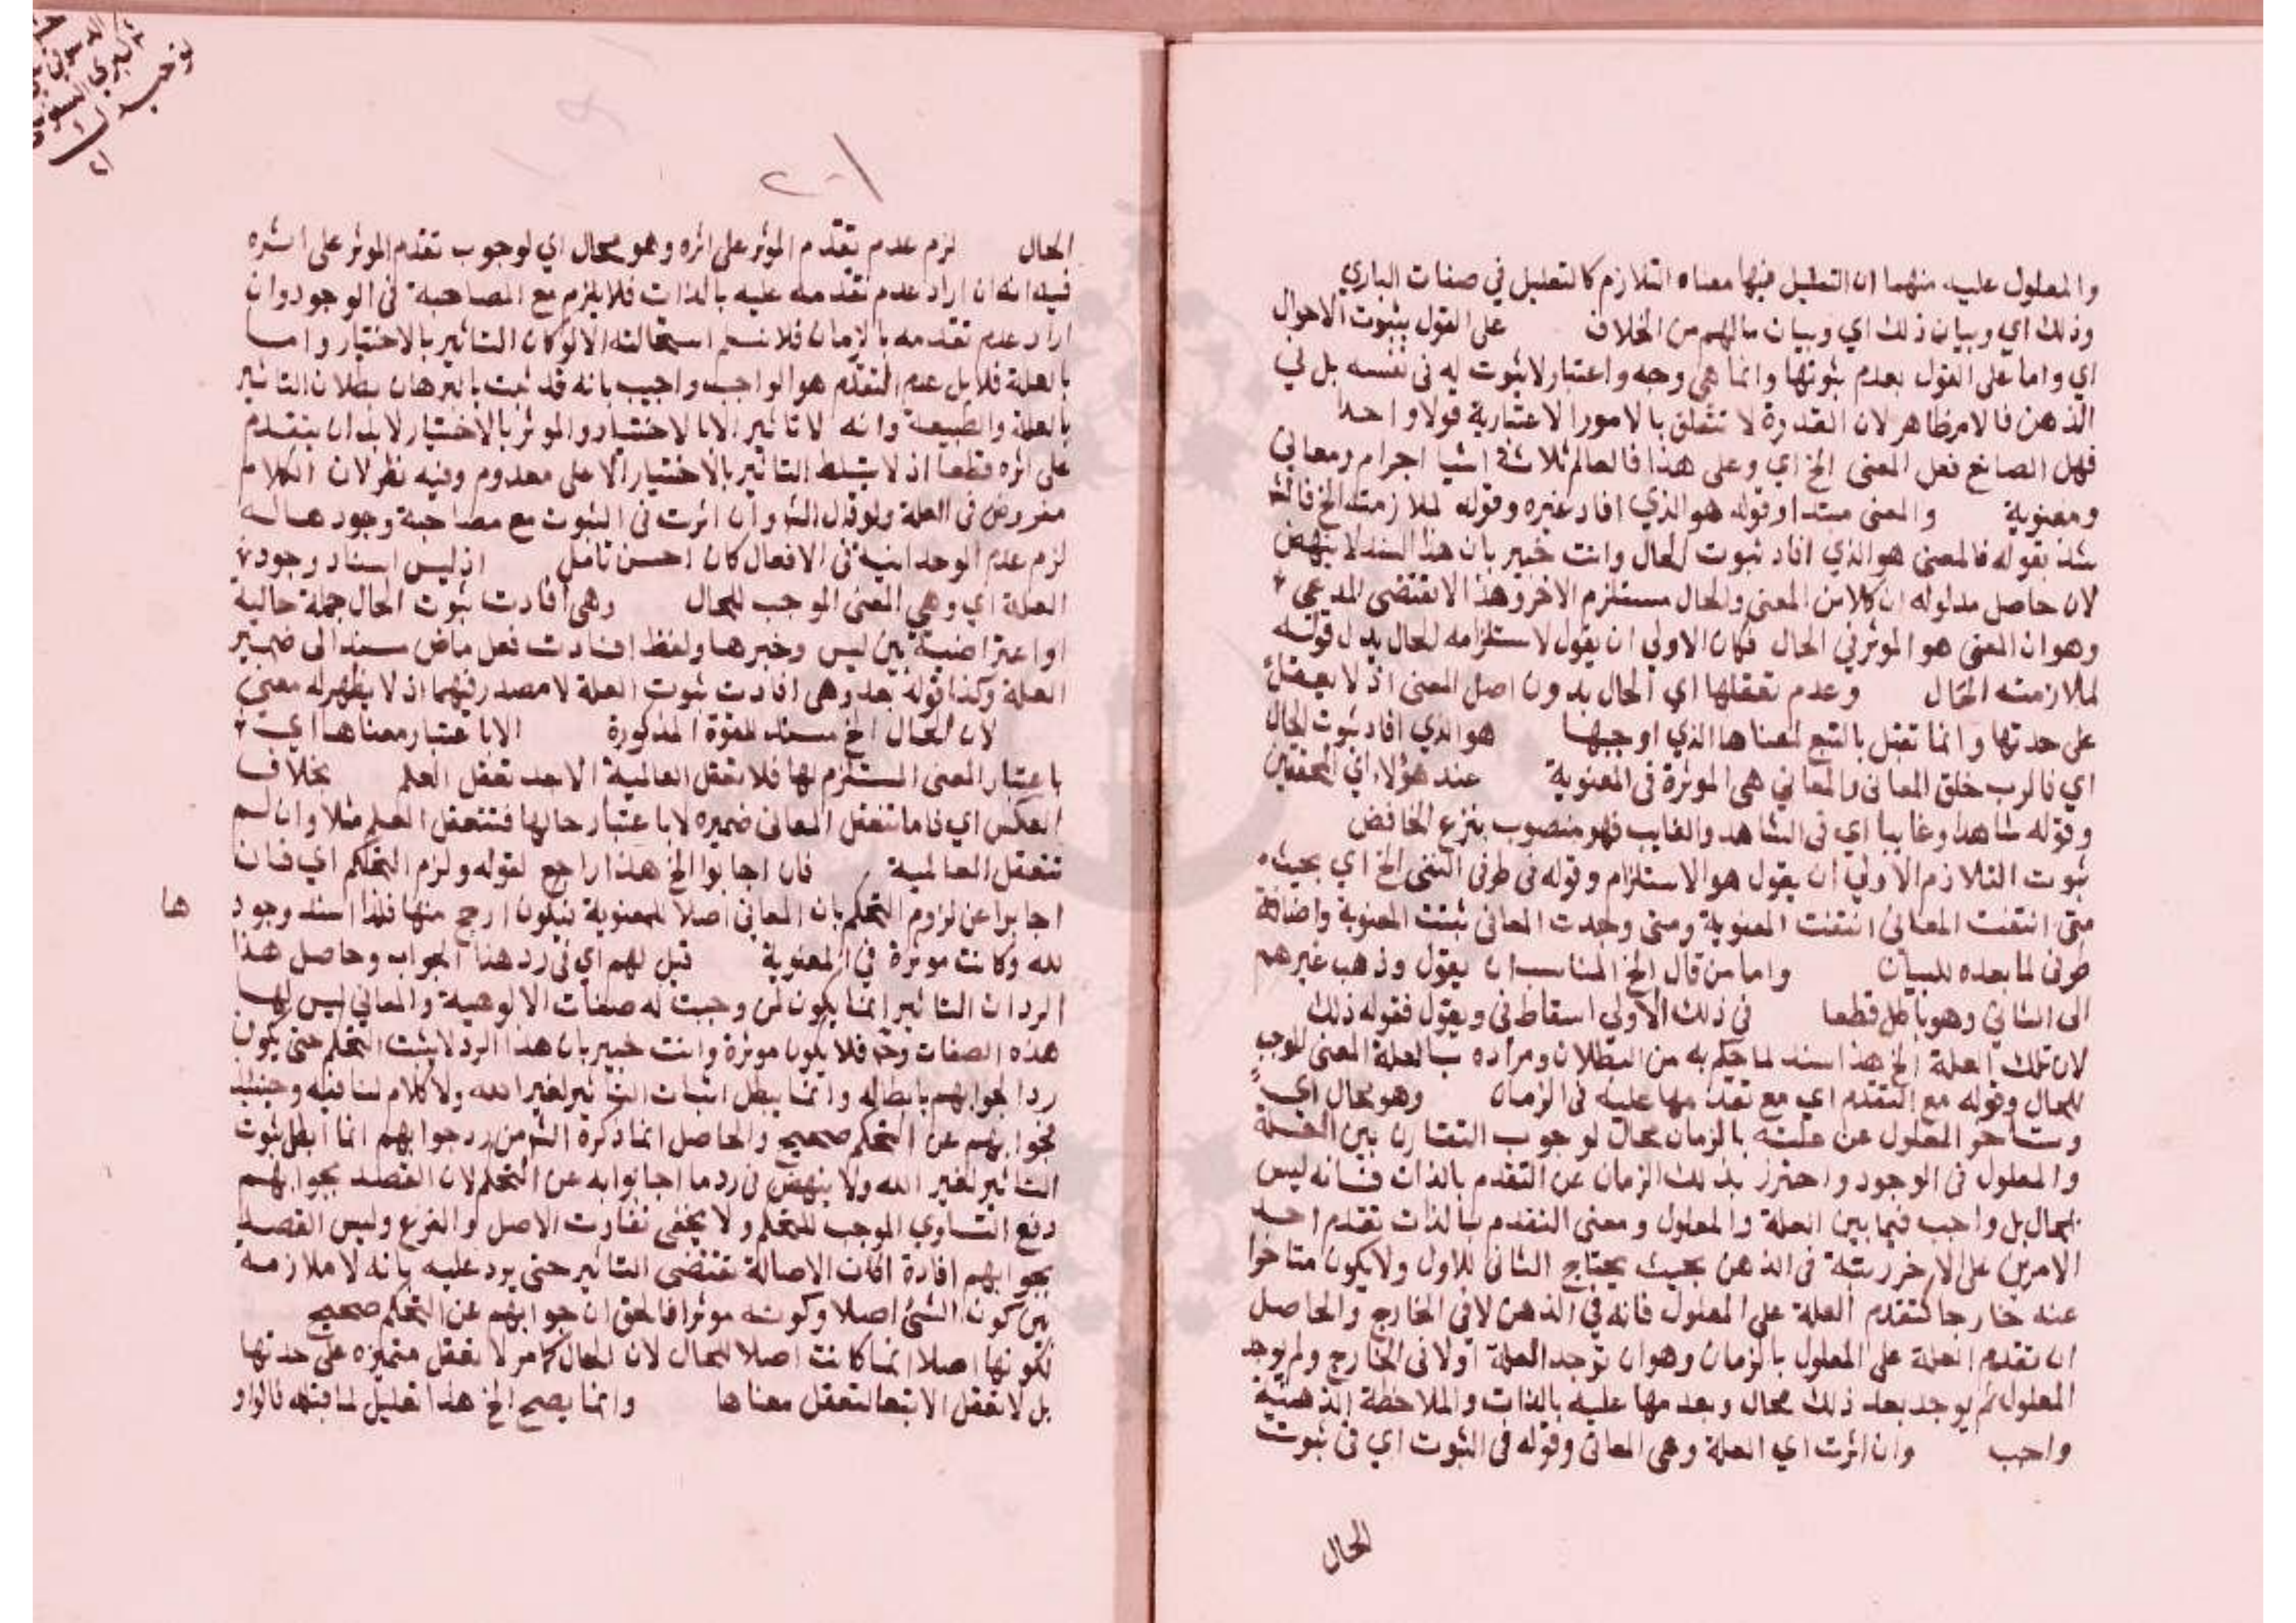 والمعلول عليه منهما ان التعليل فيها معناه التلازم كالتعليل في صفات الباري
وذلك اي وبيان ذلك اي وبيان مالهم من الخلاف على القول بثبوت الاحوال
اي واما على القول بعدم ثبوتها وانما هي وجه واعتبار لا ثبوت له في نفسه بل في
الذهن فالامر ظاهر لان القدرة لا تتعلق بالامور الاعتبارية قولا واحدا
فهل الصانع فعل المعنى الخ اي وعلى هذا فالعالم ثلاثة اشيا اجرام ومعاني
ومعنوية والمعنى مبتدا وقوله هو الذي افاد خبره وقوله لملازمته الخ
سند بقوله فالمعنى هو الذي افاد ثبوت الحال وانت خبير بان هذا السند لا ينهض
لان حاصل مدلوله ان كلا من المعنى والحال مستلزم الاخر وهذا لا يقتضى المدعي
وهو ان المعنى هو الموثر في الحال فكان الاولى ان يقول لاستلزامه للحال بدل قوله
لملازمته الحال وعدم تعقلها اي الحال بدون اصل المعنى اذ لا يعقل
على حدتها وانما تعقل بالتبع لمعناها الذي اوجبها هو الذي افاد ثبوت الحال
اي فالرب خلق المعانى والمعاني هى الموثرة فى المعنوية عند هؤلاء اي المحققين
وقوله شاهدا وغايبا اي فى الشاهد والغايب فهو منصوب بنزع الخافض
ثبوت التلازم الاولي ان يقول هو الاستلزام وقوله فى طرفى النفى الخ اي بحيث
متى انتفت المعانى انتفت المعنوية ومتى وجدت المعانى ثبتت المعنوية واضافة
طرفى لما بعده للبيان واما من قال الخ المناسب ان يقول وذهب غيرهم
الى الثاني وهو باطل قطعا في ذلك الاولى اسقاط في ويقول فقوله ذلك
لان تلك العلة الخ هذا سند لما حكم به من البطلان ومراده بالعلة المعنى الموجب
للحال وقوله مع التقدم اي مع تقدمها عليه فى الزمان وهو محال اي
وتاخر المعلول عن علته بالزمان محال لوجوب التقارن بين العلة
والمعلول فى الوجود واحترز بذلك الزمان عن التقدم بالذات فانه ليس
بمحال بل واجب فيما بين العلة والمعلول ومعنى التقدم بالذات تقدم احد
الامرين على الاخر رتبة فى الذهن بحيث يحتاج الثانى للاول ولا يكون متاخرا
عنه خارجا كتقدم العلة على المعلول فانه في الذهن لا فى الخارج والحاصل
ان تقدم العلة على المعلول بالزمان وهو ان توجد العلة اولا فى الخارج ولم يوجد
المعلول ثم يوجد بعد ذلك محال وبعدمها عليه بالذات والملاحظة الذهنية
واجب وان اثرت اي العلة وهى المعانى وقوله فى الثبوت اي فى ثبوت
الحال
الحال لزم عدم تقدم الموثر على اثره وهو محال اي لوجوب تقدم الموثر على اثره
فيه انه ان اراد عدم تقدمه عليه بالذات فلا يلزم مع المصاحبة فى الوجود وان
اراد عدم تقدمه بالزمان فلا نسلم استحالته الا لو كان التاثير بالاختيار واما
بالعلة فلا بل عدم التقدم هو الواجب واجيب بانه قد ثبت بالبرهان بطلان التاثير
بالعلة والطبيعة وانه لا تاثير الا بالاختيار والموثر بالاختيار لا بد ان يتقدم
على اثره قطعا اذ لا يتسلط التاثير بالاختيار الا على معدوم وفيه نظر لان الكلام
مفروض فى العلة ولو قال الش وان اثرت فى الثبوت مع مصاحبة وجودها له
لزم عدم الوحدانية فى الافعال كان احسن تامل اذ ليس اسناد وجود
العلة اي وهي المعنى الموجب للحال وهى افادت ثبوت الحال جملة حالية
او اعتراضية بين ليس وخبرها ولفظ افادت فعل ماض مسند الى ضمير
العلة وكذا قوله بعد وهى افادت ثبوت العلة لا مصدر فيهما اذ لا يظهر له معنى
لان الحال الخ سند للقوة المذكورة الا باعتبار معناها اي
باعتبار المعنى المستلزم لها فلا تعقل العالمية الا بعد تعقل العلم بخلاف
العكس اي فانما تتعقل المعانى ضميره لا باعتبار حالها فتتعقل العلم مثلا وان لم
تتعقل العالمية فان اجابوا الخ هذا راجع لقوله ولزم التحكم اي فان
اجابوا عن لزوم التحكم بان المعانى اصلا للمعنوية فيكون ارجح منها فلذا اسند وجود
ها
لله وكانت موثرة في المعنوية قيل لهم اي فى رد هذا الجواب وحاصل هذا
الرد ان التاثير انما يكون لمن وجبت له صفات الالوهية والمعاني ليس لها
هذه الصفات وح فلا يكون موثرة وانت خبير بان هذا الرد لا يثبت التحكم حتى يكون
ردا لجوابهم بابطاله وانما يبطل اثبات التاثير لغير الله ولا كلام لنا فيه وحينئذ
فجوابهم عن التحكم صحيح والحاصل انما ذكرة الش من رد جوابهم انما ابطل ثبوت
التاثير لغير الله ولا ينهض فى رد ما اجابوا به عن التحكم لان القصد بجوابهم
دفع التساوي الموجب للتحكم ولا يخفى تفاوت الاصل والفرع وليس القصد
بجوابهم افادة ان الاصالة تقتضى التاثير حتى يرد عليه بانه لا ملازمة
بين كون الشئ اصلا وكونه موثرا فالحق ان جوابهم عن التحكم صحيح
لكونها اصلا انما كانت اصلا للحال لان الحال كما مر لا تعقل متميزه على حدتها
بل لا تعقل الا تبعا لتعقل معناها وانما يصح الخ هذا تعليل لما قبله فالواو